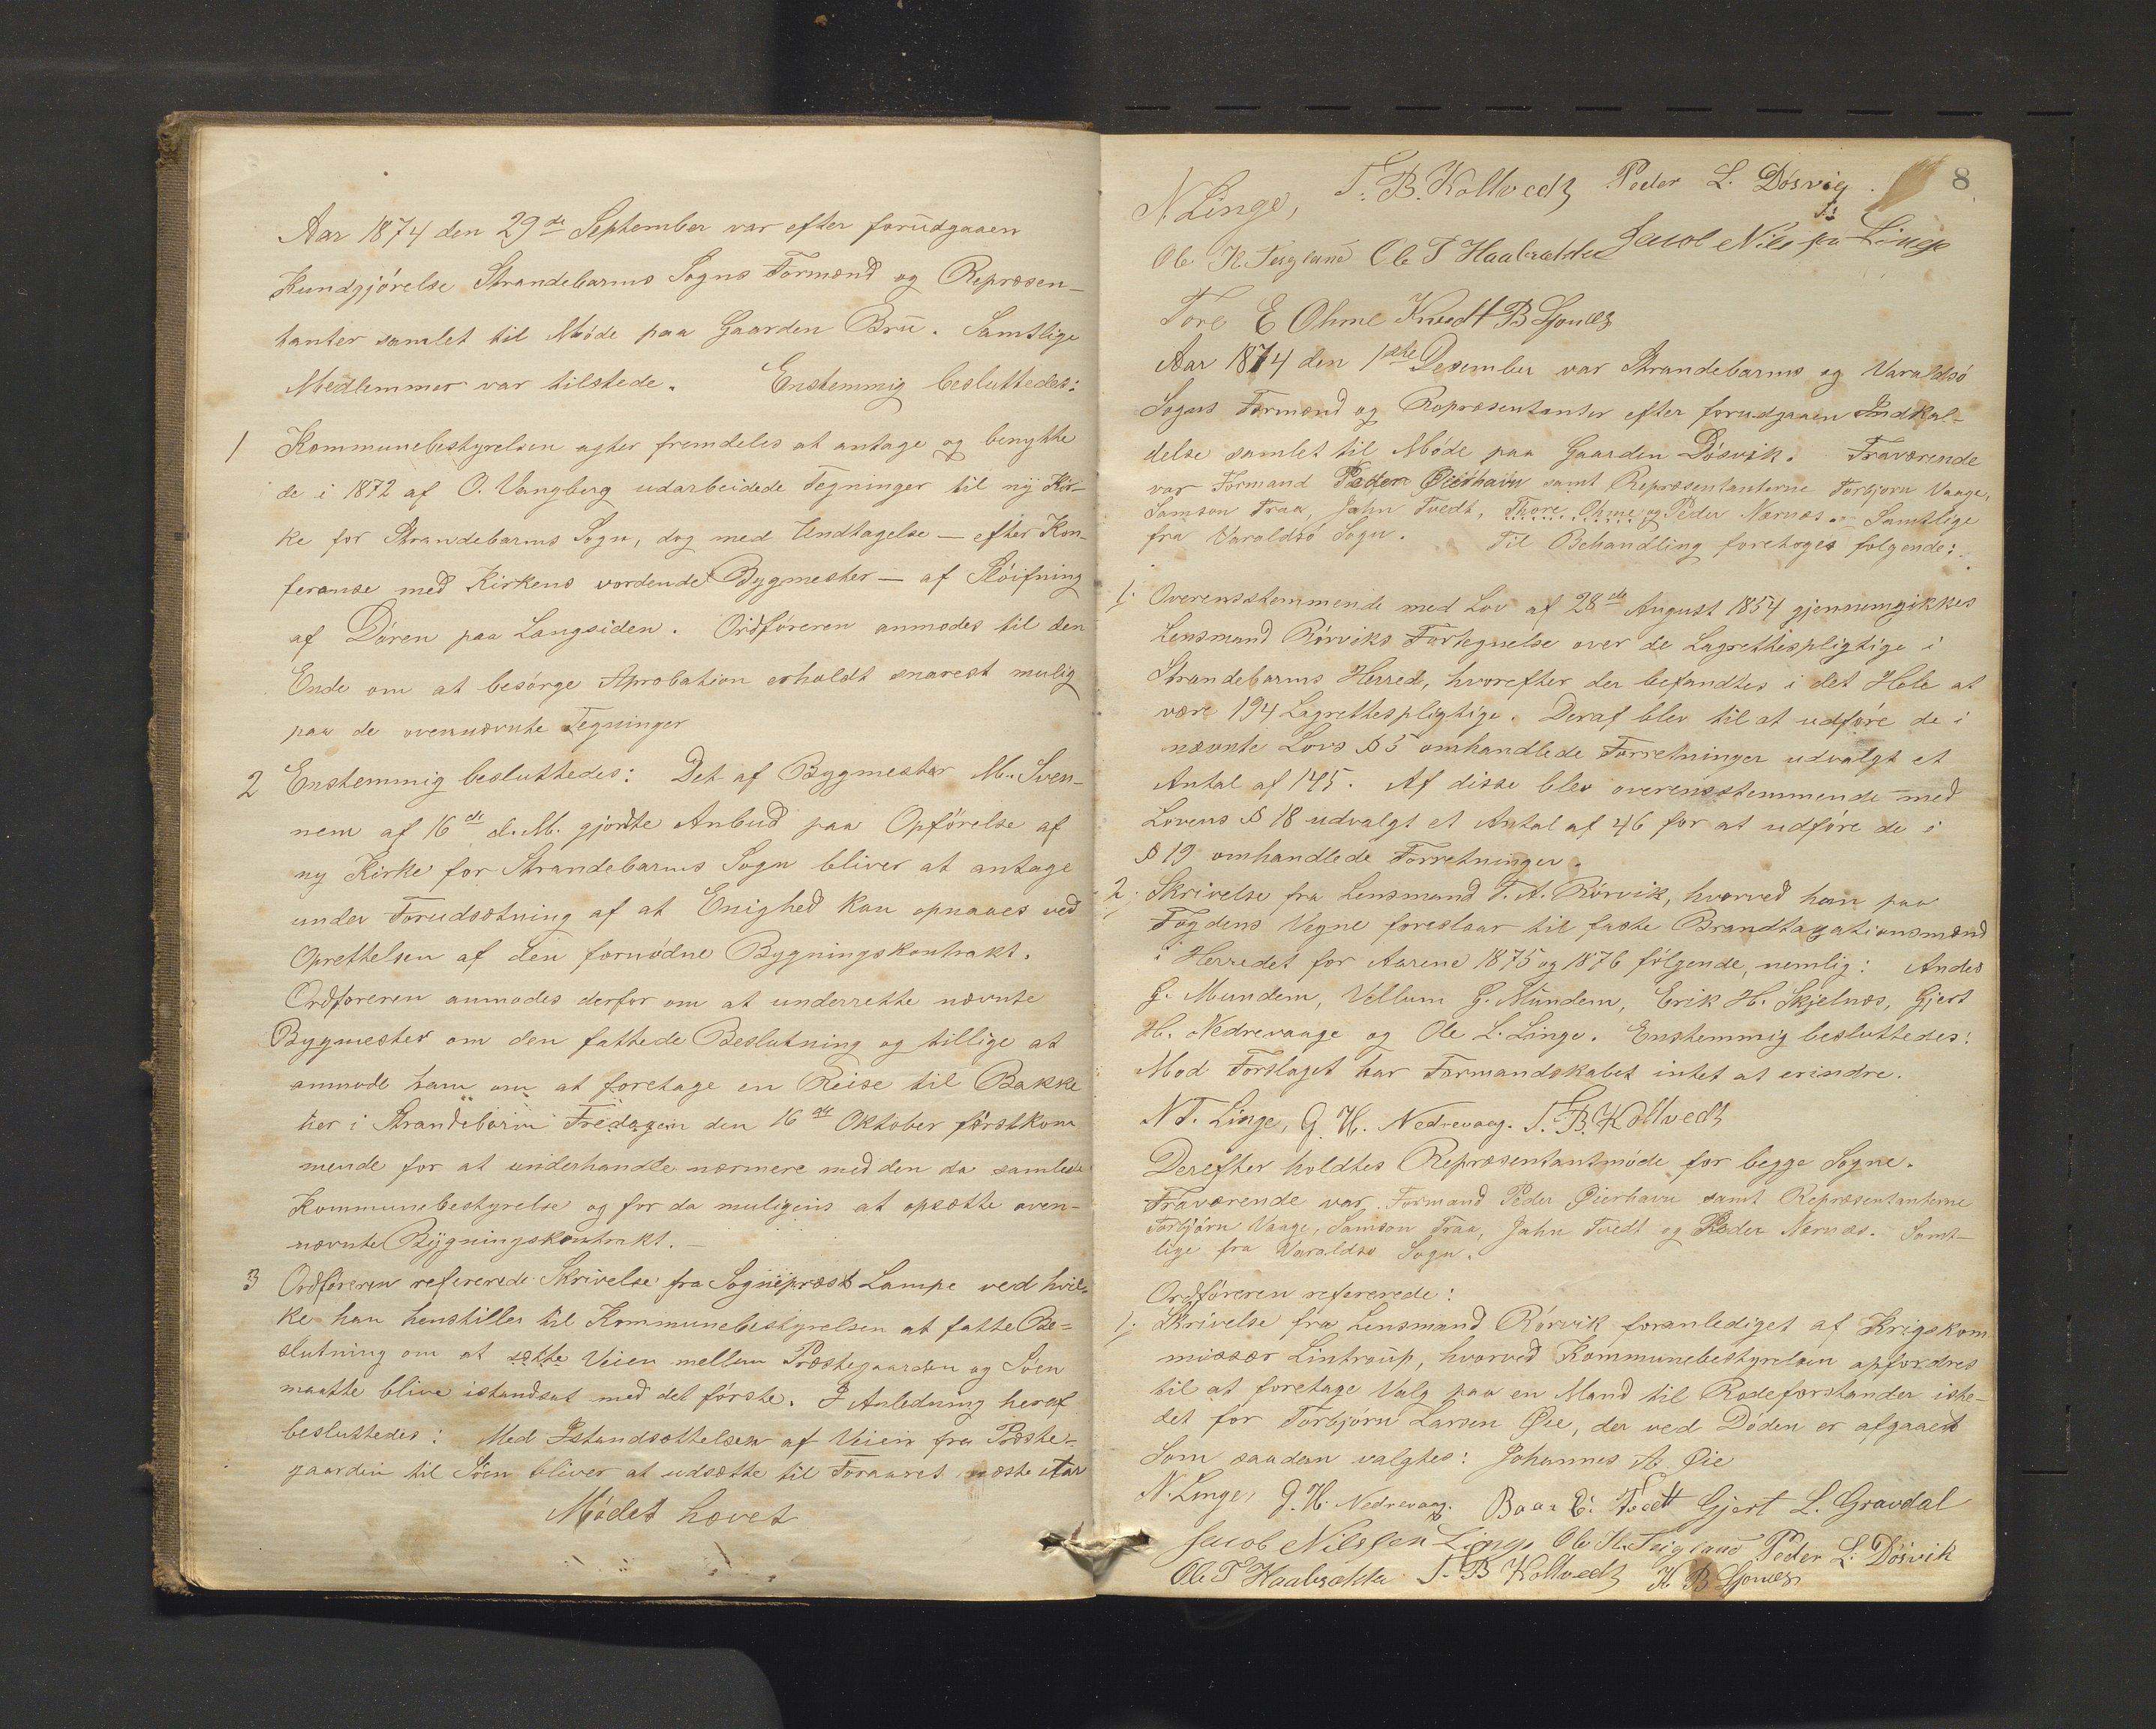 Aar 1874 den 29de September var efter forudgaaen
Kundgjørelse Strandebarms Sogns Formænd og Repræsen-
tanter samlet til Møde paa Gaarden Bru. Samtlige
Medlemmer var tilstede. Enstemmig besluttedes:
1 Kommunebestyrelsen agter fremdeles at antage og benytte
de i 1872 af O. Vangberg udarbeidede Tegninger til ny Kir-
ke for Strandebarms Sogn, dog med Undtagelse — efter Kon-
feranse med Kirkens vordende Bygmester — af Sløifning
af Døren paa Langsiden. Ordføreren anmodes til den
Ende om at besørge Aprobation erholdt snarest mulig
paa de ovennævnte Tegninger
2 Enstemmig besluttedes: Det af Bygmester M. Sven-
nem af 16de d. M. gjordte Anbud paa Opførelse af
ny Kirke for Strandebarms Sogn bliver at antage
under Forudsætning af at Enighed kan opnaaes ved
Oprettelsen af den fornødne Bygningskontrakt.
Ordføreren anmodes derfor om at underrette nævnte
Bygmester om den fattede Beslutning og tillige at
anmode ham om at foretage en Reise til Bakke
her i Strandebarm Fredagen den 16de Oktober førstkom
mende for at underhandle nærmere med den da samlede
Kommunebestyrelse og for da muligens at opsætte oven-
nævnte Bygningskontrakt. —
3 Ordføreren refererede Skrivelse fra Sogneprest Lampe ved hvil-
ke han henstiller til Kommunebestyrelsen at fatte Be-
slutning om at sætte Veien mellem Præstegaarden og Søen
maatte blive istandsat med det første. I Anledning heraf
besluttedes: Med Istandsættelsen af Veien fra Præste-
gaarden til Søen bliver at udsætte til Foraaret næste Aar
Mødet hævet
8
N. Linge, T. B. Koltvedt Peder L. Døsvig.
Ole K. Teigland Ole T Haabrække Jacob Nils pa Linge
Tore E Ohme Knudt B Ljones
Aar 1874 den 1ste Desember var Strandebarms og Varaldsø
Sogns Formænd og Repræsentanter efter forudgaaen Indkal-
delse samlet til Møde paa Gaarden Døsvik. Fraværende
var Formand Peder Øierhavn samt Repræsentanterne Torbjørn Vaage,
Samson Traa, Jahn Tvedt, Thore Ohme og Peder Nernæs. Samtlige
fra Varaldsø Sogn. Til Behandling foretoges følgende:
1. Overensstemmende med Lov af 28de August 1854 gjennemgikkes
Lensmand Rørviks Fortegnelse over de Lagrettespligtige i
Strandebarms Herred, hvorefter der befandtes i det Hele at
være 194 Lagrettespligtige. Deraf blev til at udføre de i
nævnte Lovs § 5 omhandlede Forretninger udvalgt et
Antal af 145. Af disse blev overensstemmende med
Lovens § 18 udvalgt et Antal af 46 for at udføre de i
§ 19 omhandlede Forretninger.
2. Skrivelse fra Lensmand T. A. Rørvik, hvorved han paa
Fogdens Vegne foreslaar til faste Brandtaxationsmænd
i Herredet for Aarene 1875 og 1876 følgende, nemlig: Andes
G. Mundem, Vellum G. Mundem, Erik H. Skjelnæs, Gjert
H. Nedrevaage og Ole L. Linge. Enstemmig besluttedes:
Mod Forslaget har Formandskabet intet at erindre.
N T. Linge, G. H. Nedrevaag. T. B. Koltvedt
Derefter holdtes Repræsentantmøde for begge Sogne.
Fraværende var Formand Peder Øierhavn samt Repræsentanterne
Torbjørn Vaage, Samson Traa, Jahn Tvedt og Peder Nernæs. Samt-
lige fra Varaldsø Sogn.
Ordføreren refererede:
1. Skrivelse fra Lensmand Rørvik foranlediget af Krigskom
missær Lintrup, hvorved Kommunebestyrelsen opfordres
til at foretage Valg paa en Mand til Rodeforstander iste-
det for Torbjørn Larsen Øie, der ved Døden er afgaaet
Som saadan valgtes: Johannes A. Øie
N. Linge, G. H. Nedrevaag. Baar E. Tvedt Gjert L. Gravdal
Jacob Nilssen Linge Ole K. Teigland Peder L. Døsvik
Ole T Haabrække T. B Koltvedt K B Ljones